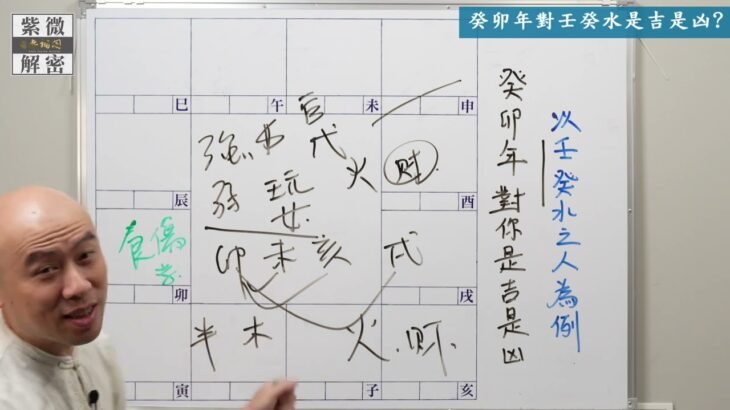 紫微
解密
癸卯年對壬癸水是吉是凶?
以壬癸水之人為例
癸卯年對你是吉是凶
巳
午
未
申
辰
酉
卯
戌
寅
子
亥
官
強
弱
戌
火
财
卯 未 亥 戌
食傷
半 木 火. 财.